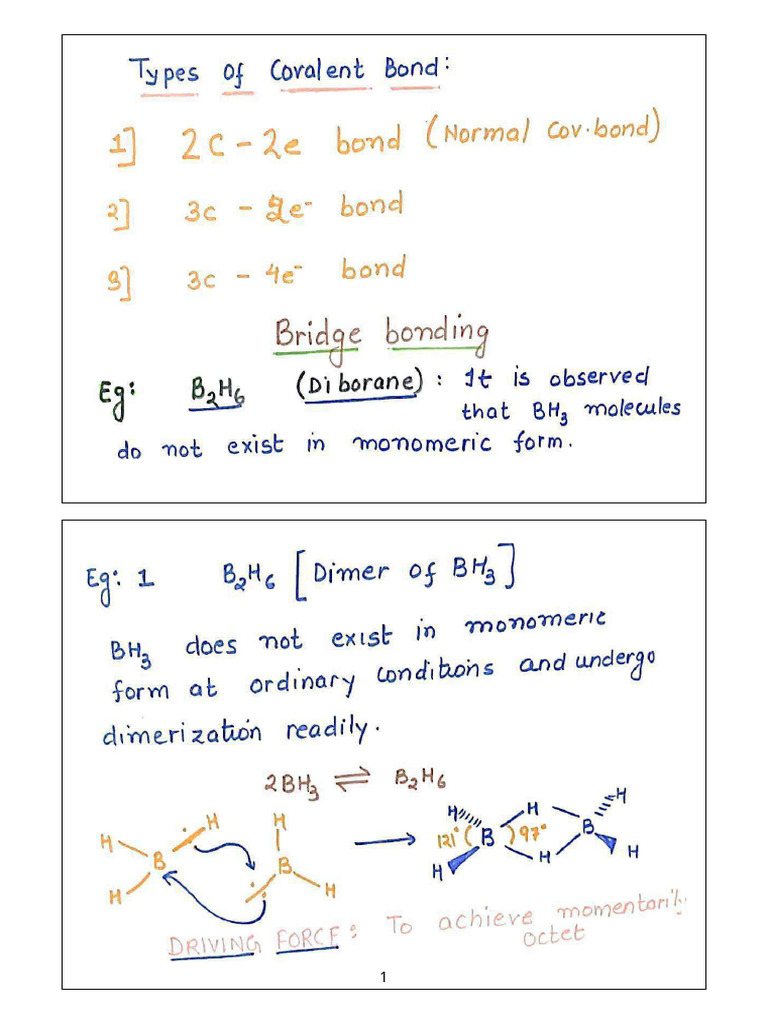 Types of Covalent Bond:
1] 2C - 2e bond (Normal Cov. bond)
2] 3c - 2e⁻ bond
3] 3c - 4e⁻ bond
Bridge bonding
Eg: B₂H₆ (Diborane) : It is observed
that BH₃ molecules
do not exist in monomeric form.
Eg: 1 B₂H₆ [Dimer of BH₃]
BH₃ does not exist in monomeric
form at ordinary conditions and undergo
dimerization readily.
2BH₃ ⇌ B₂H₆
H H H H H H
B B 121° B 97° B
H H H H H
DRIVING FORCE: To achieve momentarily
octet
1